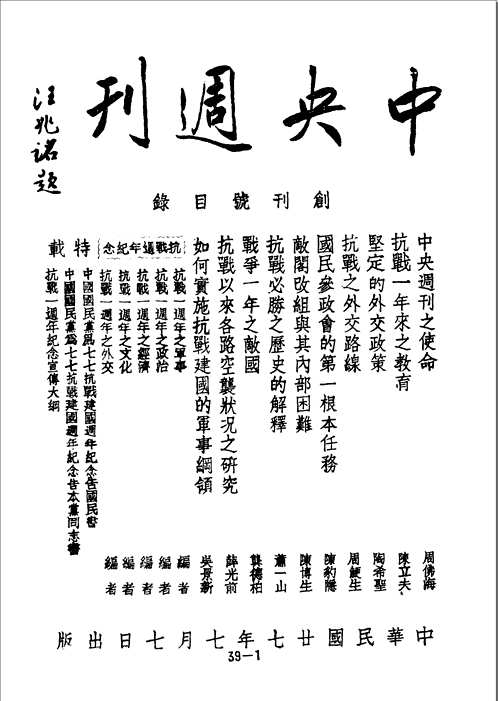 中央週刊
汪兆銘題
創刊號目錄
中央週刊之使命 周佛海
抗戰一年來之教育 陳立夫
堅定的外交政策 陶希聖
抗戰之外交路線 周鯁生
國民參政會的第一根本任務 陳豹隱
敵閣改組與其內部困難 陳博生
抗戰必勝之歷史的解釋 蕭一山
戰爭一年之敵國 龔德柏
抗戰以來各路空襲狀況之研究 薛光前
如何實施抗戰建國的軍事綱領 吳景新
抗戰週年紀念
抗戰一週年之軍事 編者
抗戰一週年之政治 編者
抗戰一週年之經濟 編者
抗戰一週年之文化 編者
抗戰一週年之外交 編者
特載
中國國民黨爲七七抗戰建國週年紀念告國民書
中國國民黨爲七七抗戰建國週年紀念告本黨同志書
抗戰一週年紀念宣傳大綱
中華民國廿七年七月七日出版
39—1